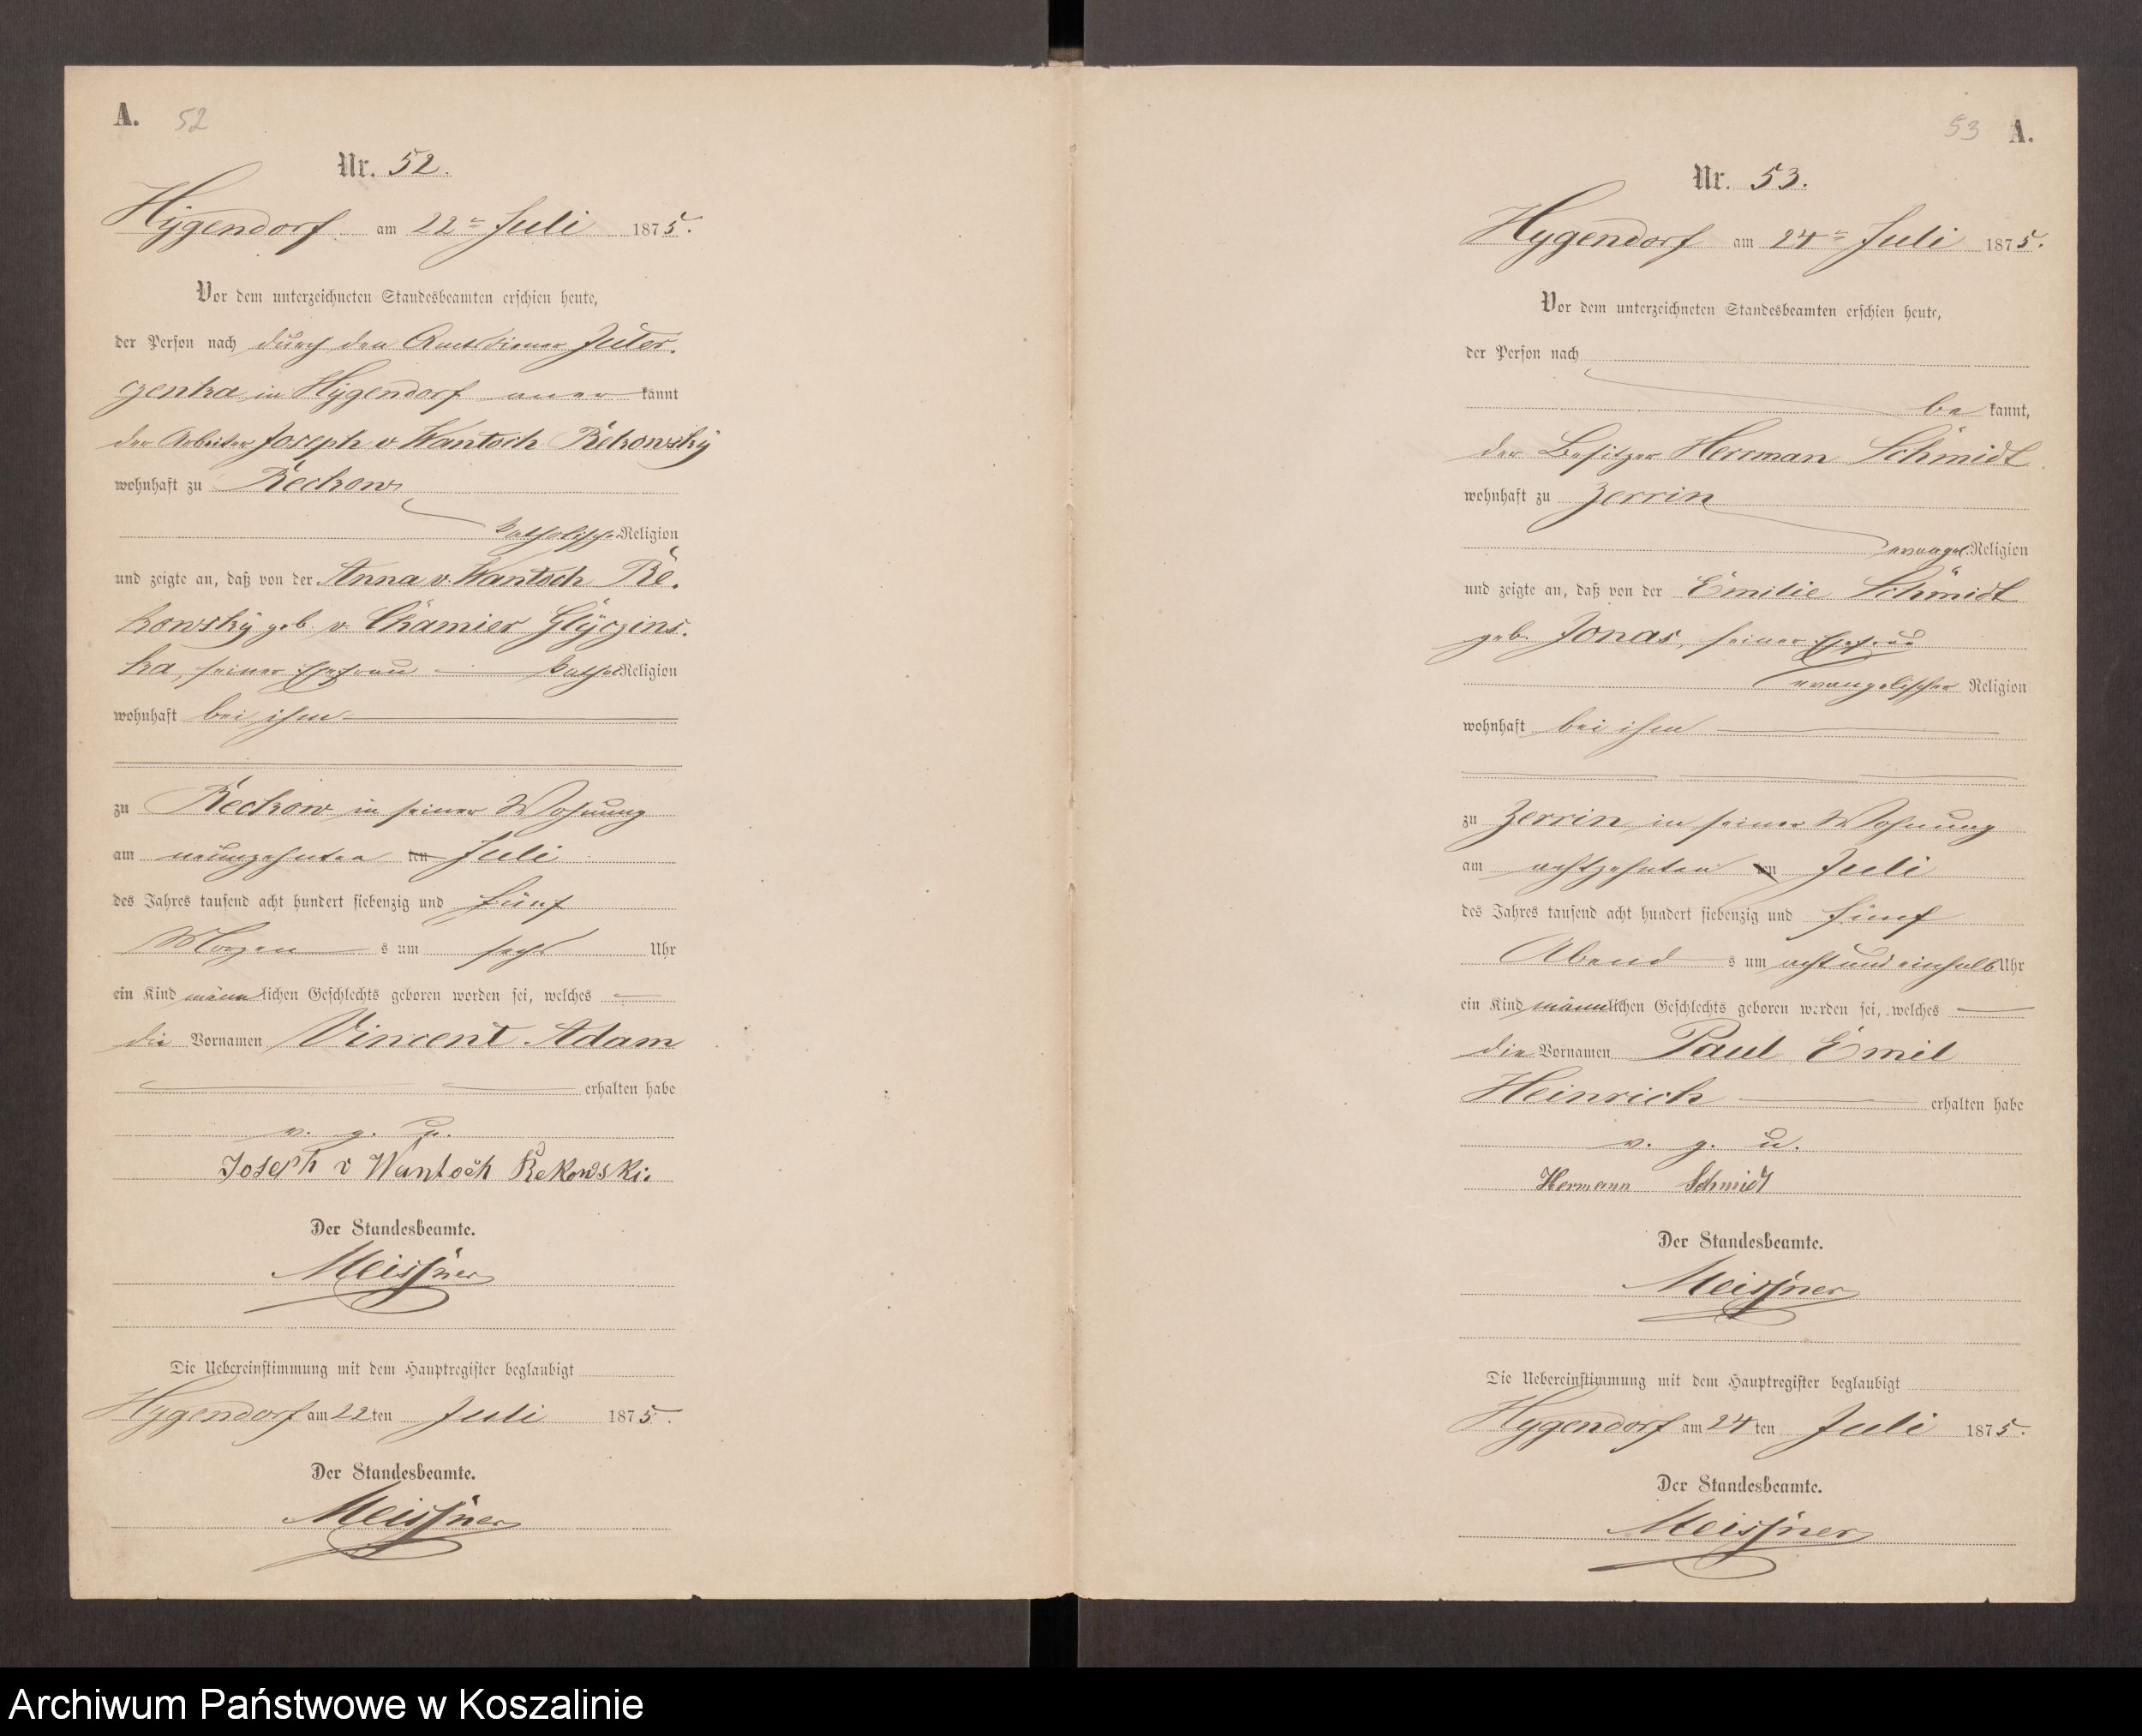 A. 52
Nr. 52.
Hygendorf am 22ⁿ Juli 1875.
Vor dem unterzeichneten Standesbeamten erschien heute,
der Person nach durch den Amtsdiener
in Hygendorf aner kannt
der Arbeiter Joseph v Wantoch Rekowsky
wohnhaft zu Reckow
katholische Religion
und zeigte an, daß von der Anna v. Wantoch Re-
kowsky geb. v. Chamier Glyczins-
ka, seiner Ehefrau kathol Religion
wohnhaft bei ihm
zu Reckow in seiner Wohnung
am neunzehnten ten Juli
des Jahres tausend acht hundert siebenzig und fünf
Morgen s um sechs Uhr
ein Kind männlichen Geschlechts geboren worden sei, welches
die Vornamen Vincent Adam
erhalten habe
v. g. u.
Joseph v Wantoch Rekowski.
Der Standesbeamte.
Meissner
Die Uebereinstimmung mit dem Hauptregister beglaubigt
Hygendorf am 22 ten Juli 1875.
Der Standesbeamte.
Meissner
53 A.
Nr. 53.
Hygendorf am 24ⁿ Juli 1875.
Vor dem unterzeichneten Standesbeamten erschien heute,
der Person nach
be kannt,
der Besitzer Herrman Schmidt
wohnhaft zu Zerrin
evangel. Religion
und zeigte an, daß von der Emilie Schmidt
geb. Jonas, seiner Ehefrau
evangelischer Religion
wohnhaft bei ihm
zu Zerrin in seiner Wohnung
am achtzehnten ten Juli
des Jahres tausend acht hundert siebenzig und fünf
Abend s um acht und einhalb Uhr
ein Kind männlichen Geschlechts geboren worden sei, welches
die Vornamen Paul Emil
Heinrich erhalten habe
v. g. u.
Hermann Schmidt
Der Standesbeamte.
Meissner
Die Uebereinstimmung mit dem Hauptregister beglaubigt
Hygendorf am 24 ten Juli 1875.
Der Standesbeamte.
Meissner
Archiwum Państwowe w Koszalinie